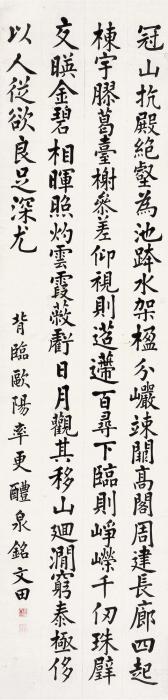 冠山抗殿絕壑為池跨水架楹分巖竦闕高閣周建長廊四起
棟宇膠葛臺榭參差仰視則迢遰百尋下臨則崢嶸千仞珠璧
交暎金碧相暉照灼雲霞蔽虧日月觀其移山迴澗窮泰極侈
以人從欲良足深尤
背臨歐陽率更醴泉銘文田